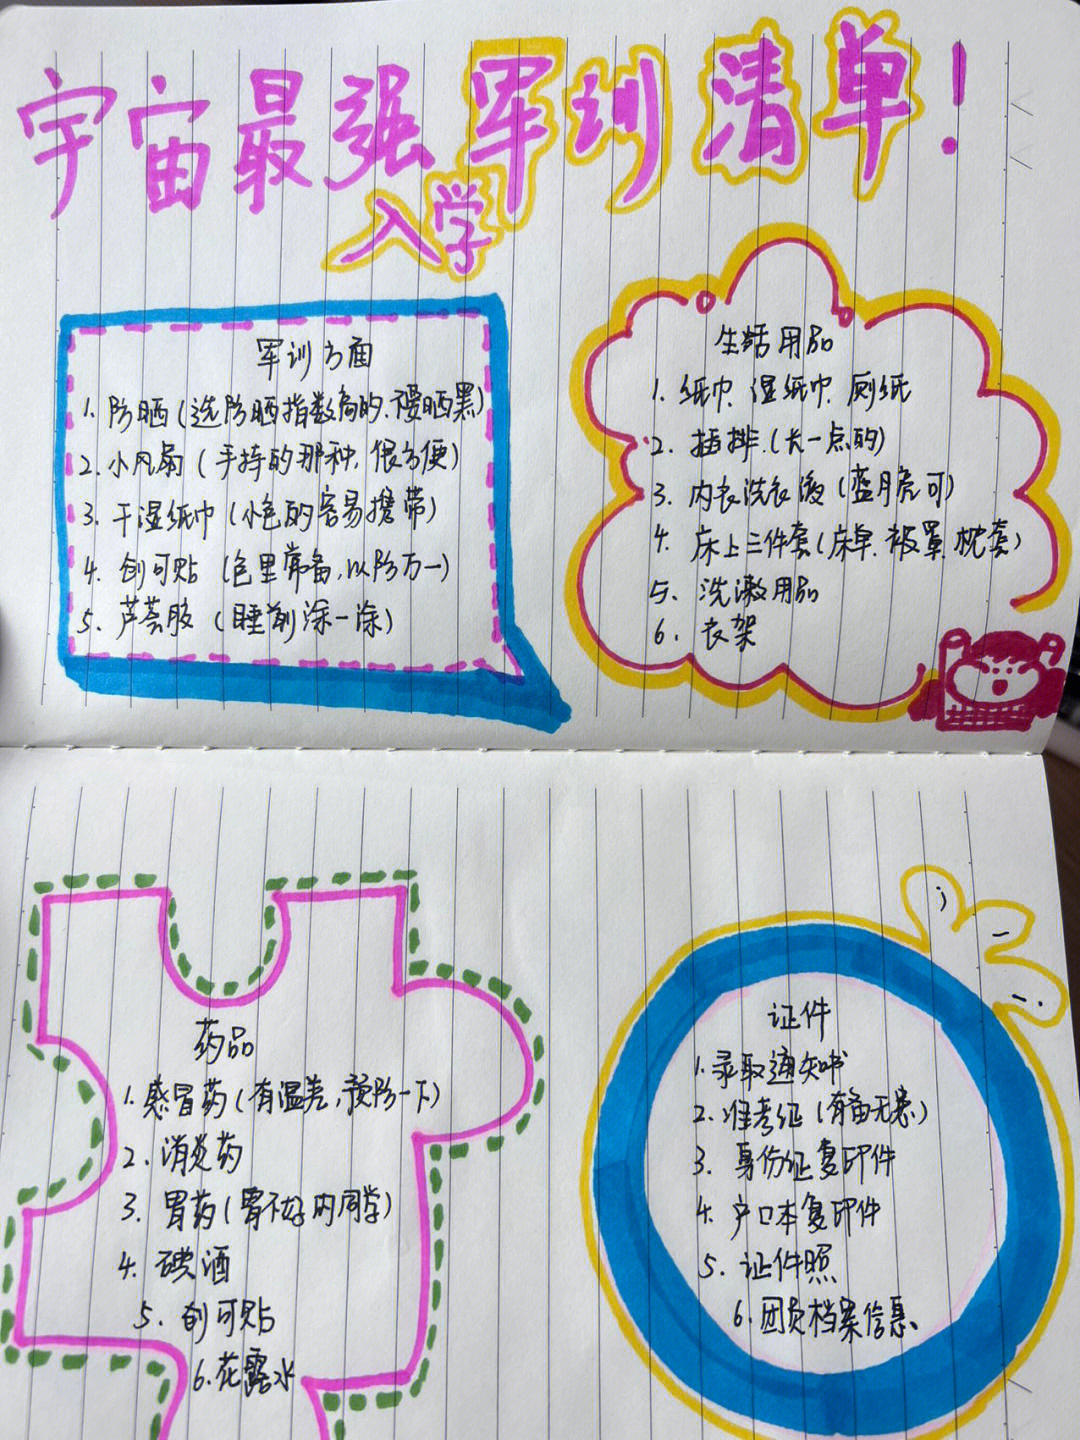 宇宙最强军训清单!
入学
军训方面
1. 防晒(选防晒指数高的、嘎晒黑)
2. 小风扇(手持的那种,很方便)
3. 干湿纸巾(小包的容易携带)
4. 创可贴(包里常备,以防万一)
5. 芦荟胶(睡前涂一涂)
生活用品
1. 纸巾、湿纸巾、厕纸
2. 插排.(长一点的)
3. 内衣洗衣液(蓝月亮可)
4. 床上三件套(床单、被罩、枕套)
5. 洗漱用品
6. 衣架
药品
1. 感冒药(有温差,预防一下)
2. 消炎药
3. 胃药(胃不好的同学)
4. 碘酒
5. 创可贴
6. 花露水
证件
1. 录取通知书
2. 准考证(有备无患)
3. 身份证复印件
4. 户口本复印件
5. 证件照
6. 团员档案信息